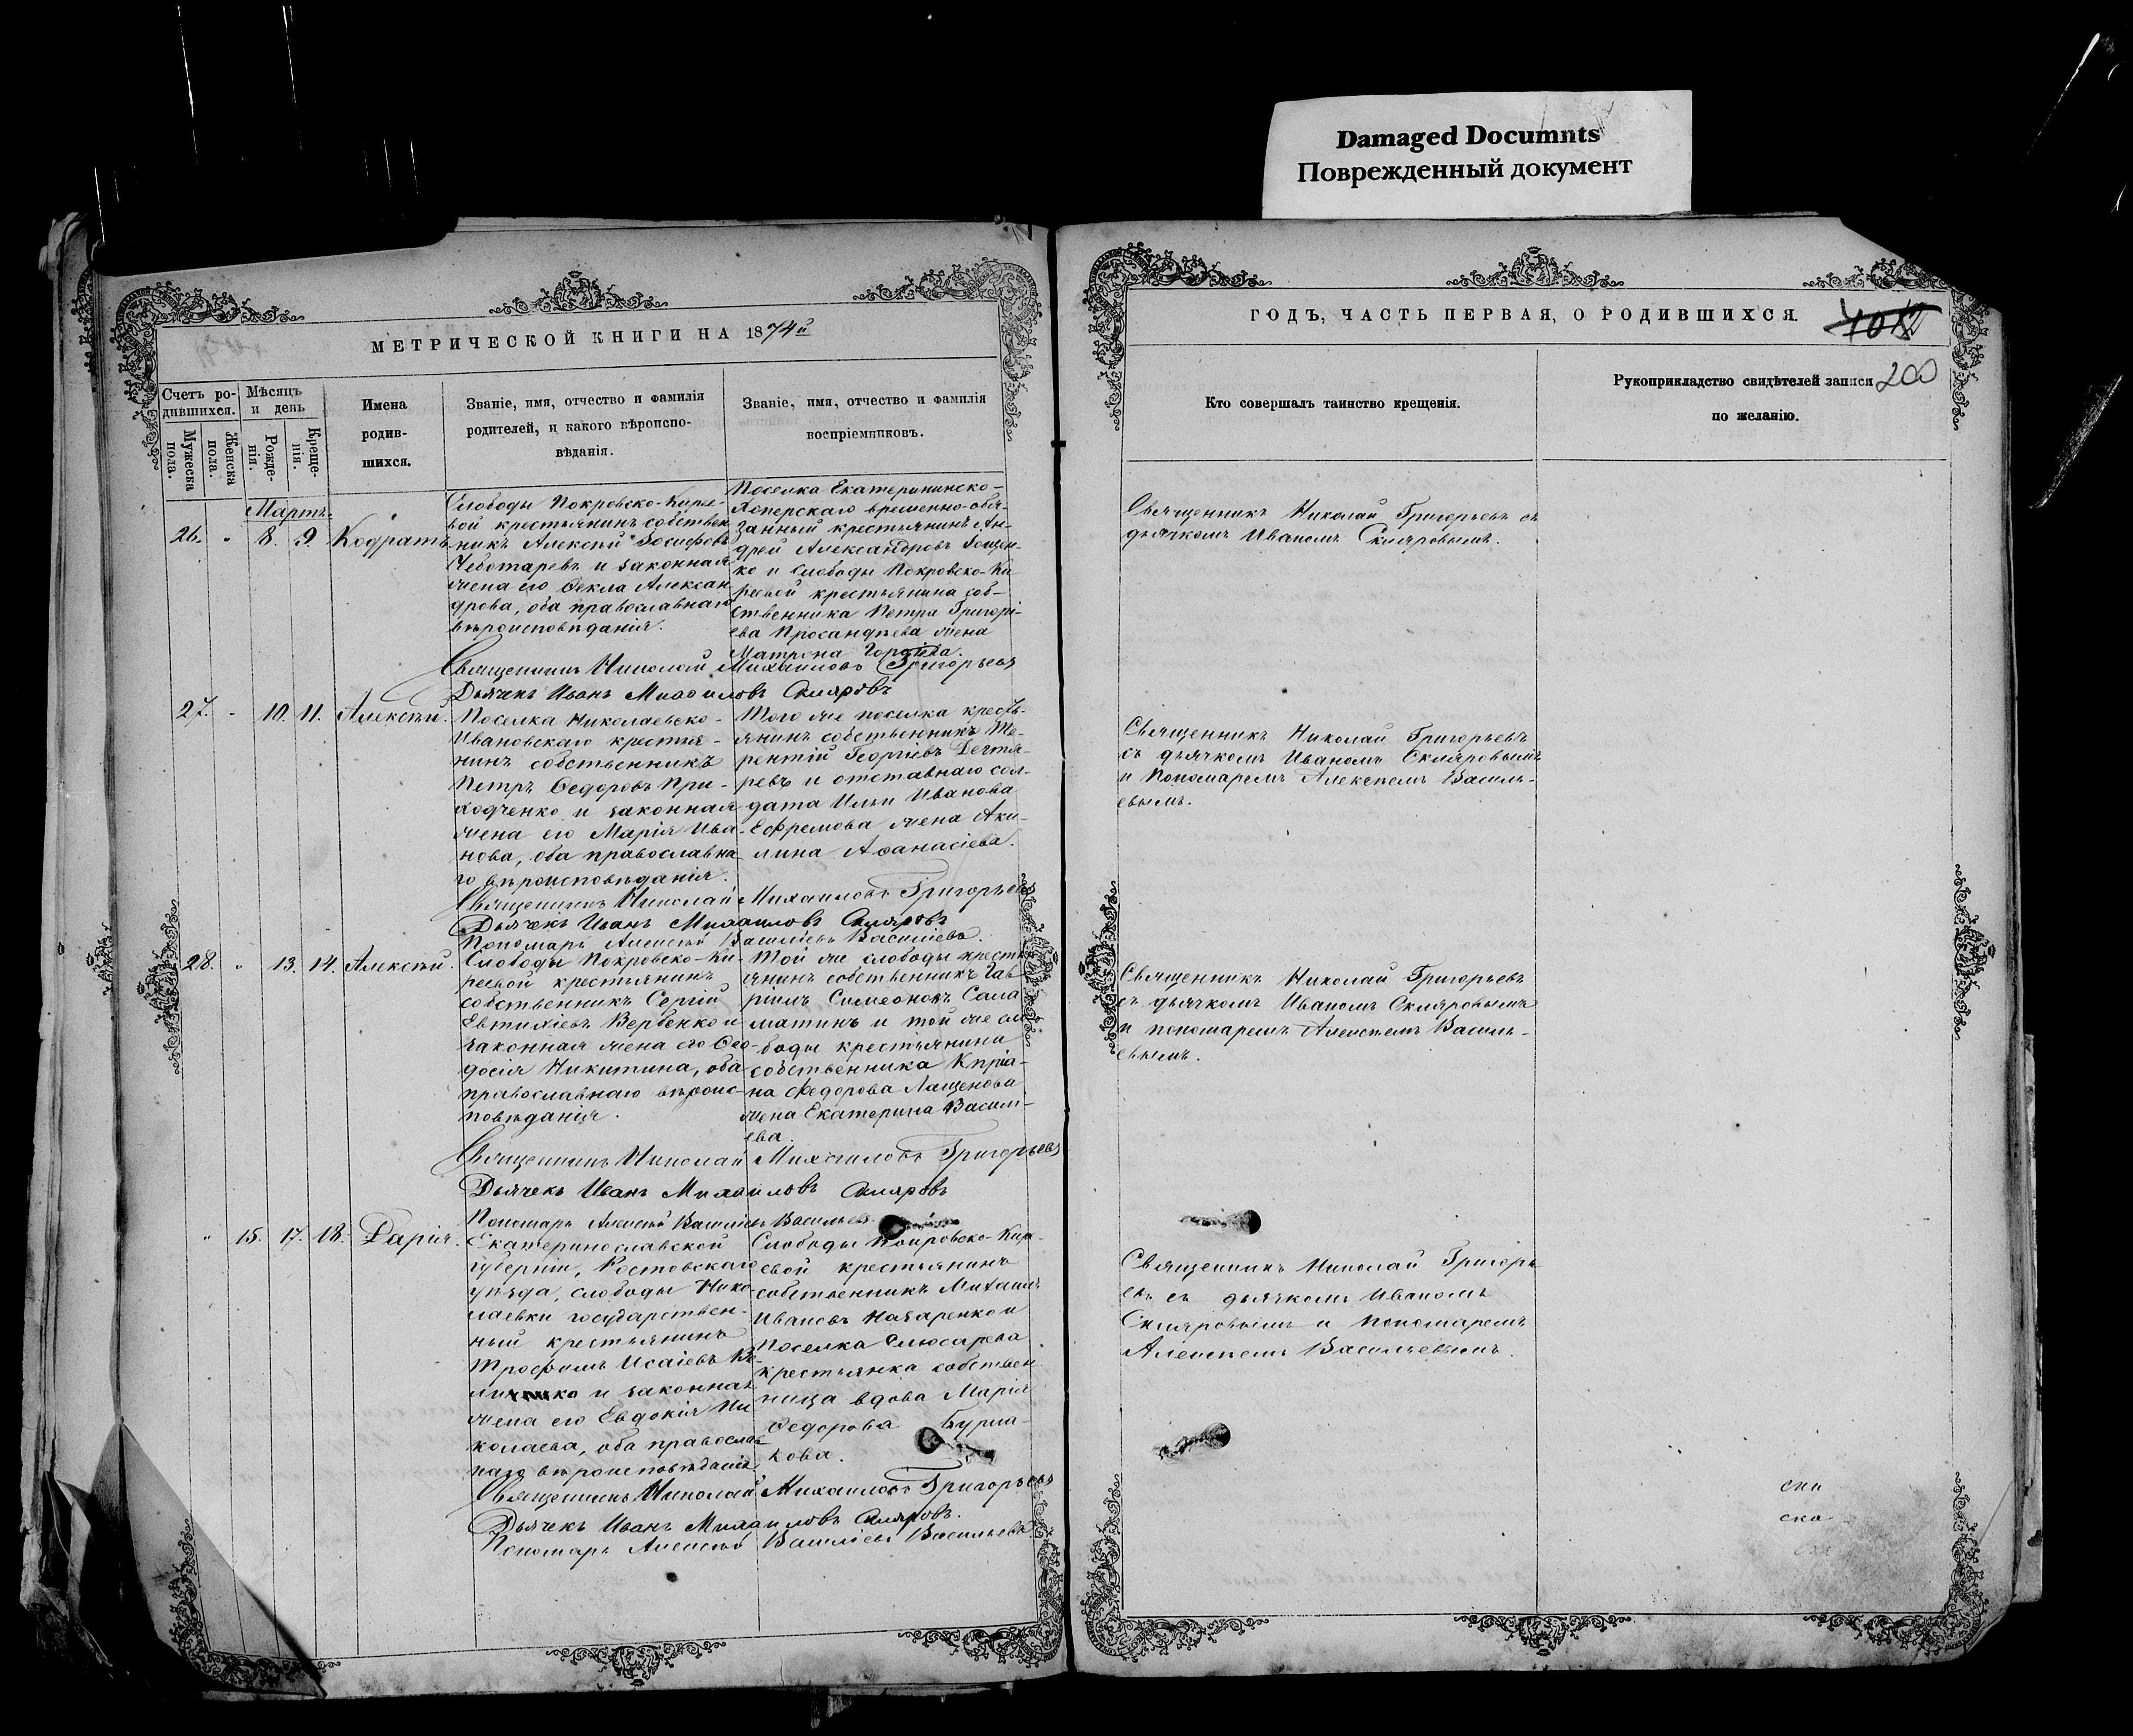 Damaged Documnts
Поврежденный документ
МЕТРИЧЕСКОЙ КНИГИ НА 1874й
Счетъ ро-
дившихся.
Мужеска пола.
Женска пола.
Мѣсяцъ
и день
Рожде-
нія.
Креще-
нія.
Имена
родив-
шихся.
Званіе, имя, отчество и фамилія
родителей, и какого вѣроиспо-
вѣданія.
Званіе, имя, отчество и фамилія
воспріемниковъ.
Мартъ.
26. " 8. 9. Кодратъ
Слободы Покровско-Кирѣе-
вой крестьянинъ собствен
никъ Алексѣй Іосифовъ
Чеботаревъ и законная
жена его Ѳекла Алексан
дрова, оба православнаго
вѣроисповѣданія.
Поселка Екатерининско-
Хоперскаго временно-обя-
занный крестьянинъ Ан-
дрей Александровъ
ко и Слободы Покровско-Ки
рѣевой крестьянина соб-
ственника Петра Григорі-
ева Просандѣева жена
Матрона
Священникъ Николай Михаиловъ Григорьевъ
Дьячекъ Иванъ Михаиловъ Скляровъ
27. " 10. 11. Алексѣй.
Поселка Николаевско-
Ивановскаго крестья-
нинъ собственникъ
Петръ Ѳедоровъ При-
ходченко и законная
жена его Марія Ива-
нова, оба православна
го вѣроисповѣданія.
Того же поселка кресть-
янинъ собственникъ Те-
рентій Георгіевъ Дегтя-
ревъ и отставнаго сол-
дата Ильи Иванова
Ефремова жена Аки-
лина Аѳанасіева.
Священникъ Николай Михаиловъ Григорьевъ
Дьячекъ Иванъ Михаиловъ Скляровъ
Пономарь Алексѣй Василіевъ Василіевъ.
28. " 13. 14. Алексѣй.
Слободы Покровско-Ки-
рѣевой крестьянинъ
собственникъ Сергій
Евтихіевъ Вербенко и
законная жена его Ѳео-
досія Никитина, оба
православнаго вѣроис-
повѣданія.
Той же слободы кресть
янинъ собственникъ Гав-
риилъ Симеоновъ Сала
матинъ и той же сло-
боды крестьянина
собственника Кипріа-
на Ѳедорова Лащенова
жена Екатерина Васили-
ева.
Священникъ Николай Михаиловъ Григорьевъ
Дьячекъ Иванъ Михаиловъ Скляровъ
Пономарь Алексѣй Василіевъ Васильевъ
" 15. 17. 18. Дарія.
Екатеринославской
губерніи, Ростовскаго
уѣзда, слободы Нико-
лаевки государствен-
ный крестьянинъ
Трофимъ Исаіевъ
и законная
жена его Евдокія Ни
колаева, оба православ
наго вѣроисповѣданія.
Слободы Покровско-Кирѣ-
евой крестьянинъ
собственникъ Михаилъ
Ивановъ Назаренко и
поселка Слюсарева
крестьянка собствен
ница вдова Марія
Ѳедорова Бурла-
кова.
Священникъ Николай Михаиловъ Григорьевъ
Дьячекъ Иванъ Михаиловъ Скляровъ.
Пономарь Алексѣй Василіевъ Васильевъ
ГОДЪ, ЧАСТЬ ПЕРВАЯ, О РОДИВШИХСЯ.
200
Кто совершалъ таинство крещенія.
Рукоприкладство свидѣтелей записи
по желанію.
Священникъ Николай Григорьевъ съ
дьячкомъ Иваномъ Скляровымъ.
Священникъ Николай Григорьевъ
съ дьячкомъ Иваномъ Скляровымъ
и Пономаремъ Алексѣемъ Василь-
евымъ.
Священникъ Николай Григорьевъ
съ дьячкомъ Иваномъ Скляровымъ
и пономаремъ Алексѣемъ Василь-
евымъ.
Священникъ Николай Григорь
евъ съ дьячкомъ Иваномъ
Скляровымъ и пономаремъ
Алексѣемъ Васильевымъ.